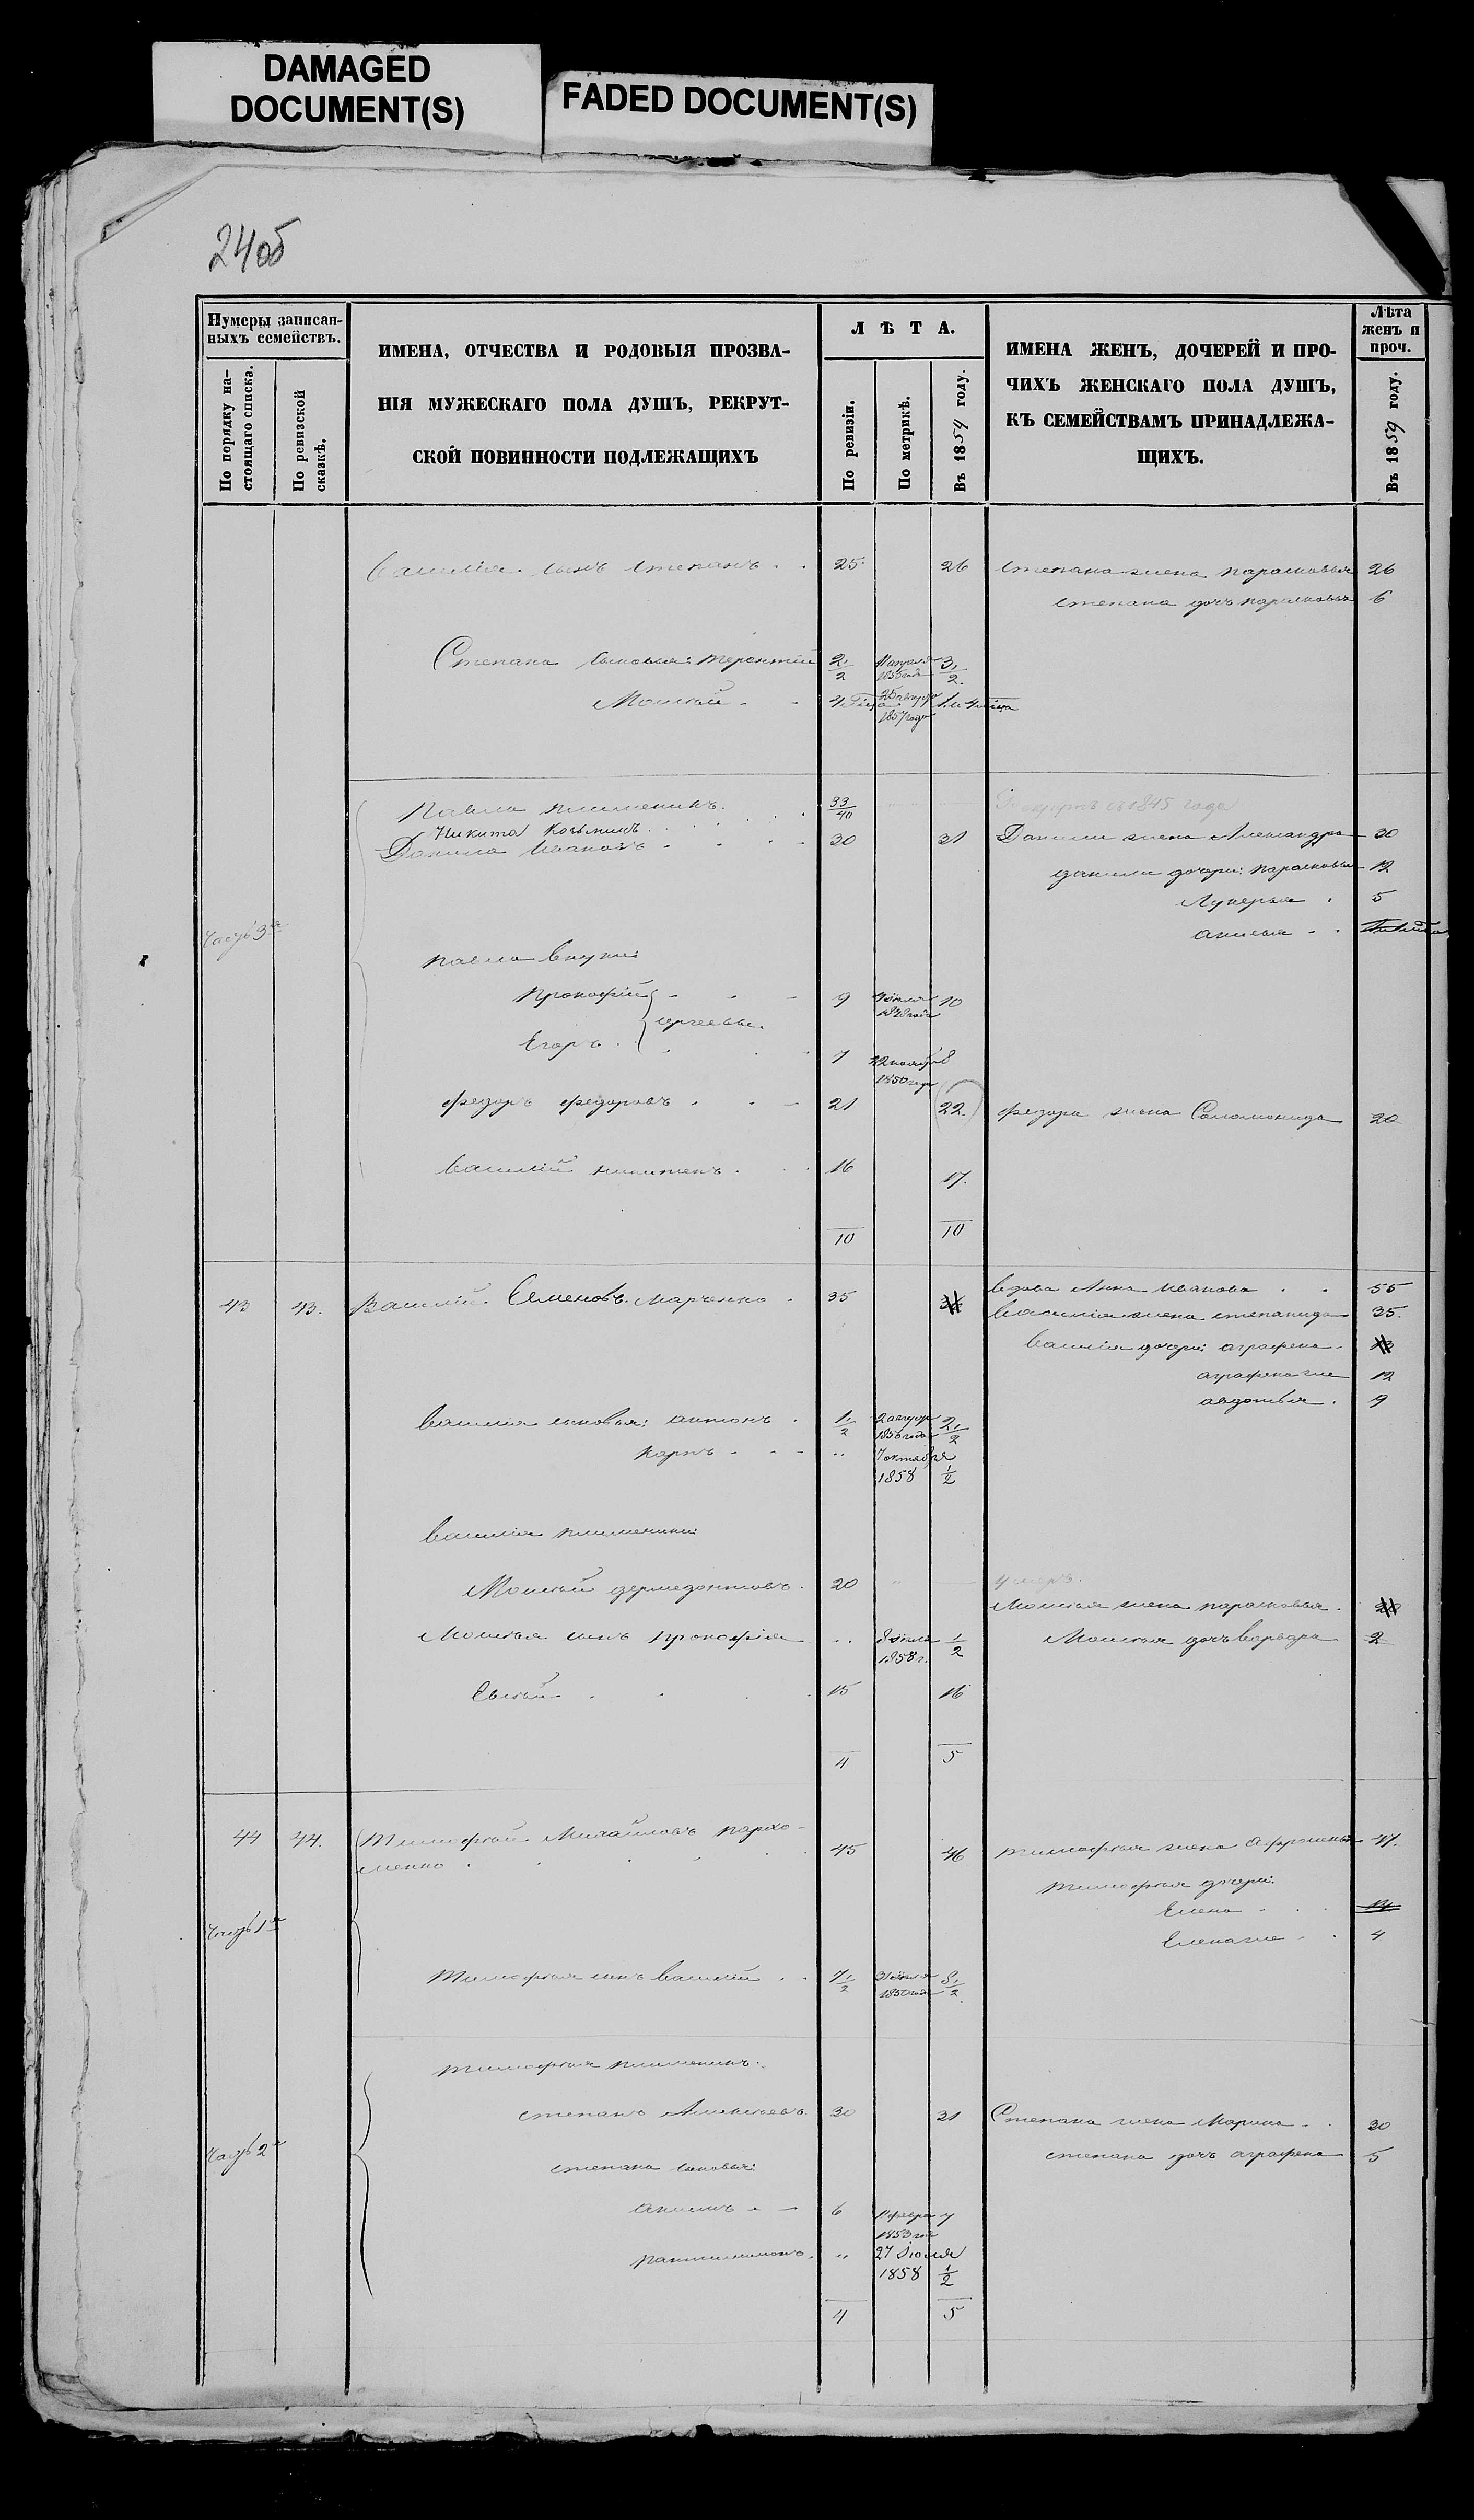 DAMAGED
DOCUMENT(S)
FADED DOCUMENT(S)
24об
Нумеры записан-
ныхъ семействъ.
По порядку на-
стоящаго списка.
По ревизской
сказкѣ.
ИМЕНА, ОТЧЕСТВА И РОДОВЫЯ ПРОЗВА-
НІЯ МУЖЕСКАГО ПОЛА ДУШЪ, РЕКРУТ-
СКОЙ ПОВИННОСТИ ПОДЛЕЖАЩИХЪ
ЛѢТА.
По ревизіи.
По метрикѣ.
Въ 1859 году.
ИМЕНА ЖЕНЪ, ДОЧЕРЕЙ И ПРО-
ЧИХЪ ЖЕНСКАГО ПОЛА ДУШЪ,
КЪ СЕМЕЙСТВАМЪ ПРИНАДЛЕЖА-
ЩИХЪ.
Лѣта
женъ и
проч.
Въ 1859 году.
Василія сынъ Степанъ 25 26 Степана жена парасковья 26
степана дочь парасковья 6
Степана сыновья: терентій 2 1/2 1855 года 3 1/2
Моисей 25 1857 года
Павла племенникъ 33/40 1845 года
Никита Козьминъ
Данила Ивановъ 30 31 Данилы жена Александра 30
данилы дочери: парасковья 12
Лукерья 5
акилина
Часть 3я
павла внуки:
прокофій 9 1848 года 10
сергеевы
Егоръ 7 22 ноября 8
1850 года
федоръ федоровъ 21 22 федора жена Соломонида 20
Василій никитенъ 16 17
10 10
43 43. Василій Семеновъ Марченко 35 вдова Анна иванова 55
Василія жена степанида 35
Василія дочери: аграфена
аграфена же 12
авдотья 9
Василія сыновья: антонъ 1 1/2 2 августа 1856 года 2 1/2
карпъ 7 октября
1858 1/2
Василія племенники:
Моисей дермедонтовъ 20 умеръ.
Моисея жена парасковья
Моисея сынъ прокофій 8 1858 г. 1/2 Моисея дочь варвара 2
Евсей 15 16
4 5
44 44. Тимофей Михайловъ пархо-
менко 45 46 тимофея жена Афросинья 47.
тимофея дочери:
Елена
Елена же 4
Часть 1я
Тимофея сынъ василій 7 1/2 1850 года 8 1/2
тимофея племенникъ
степанъ Алексеевъ 30 31 Степана жена Марина 30
Часть 2я
степана дочь аграфена 5
степана сыновья:
акимъ 6 февра 7
1853 года
пантилимонъ 27 Іюля
1858 1/2
4 5